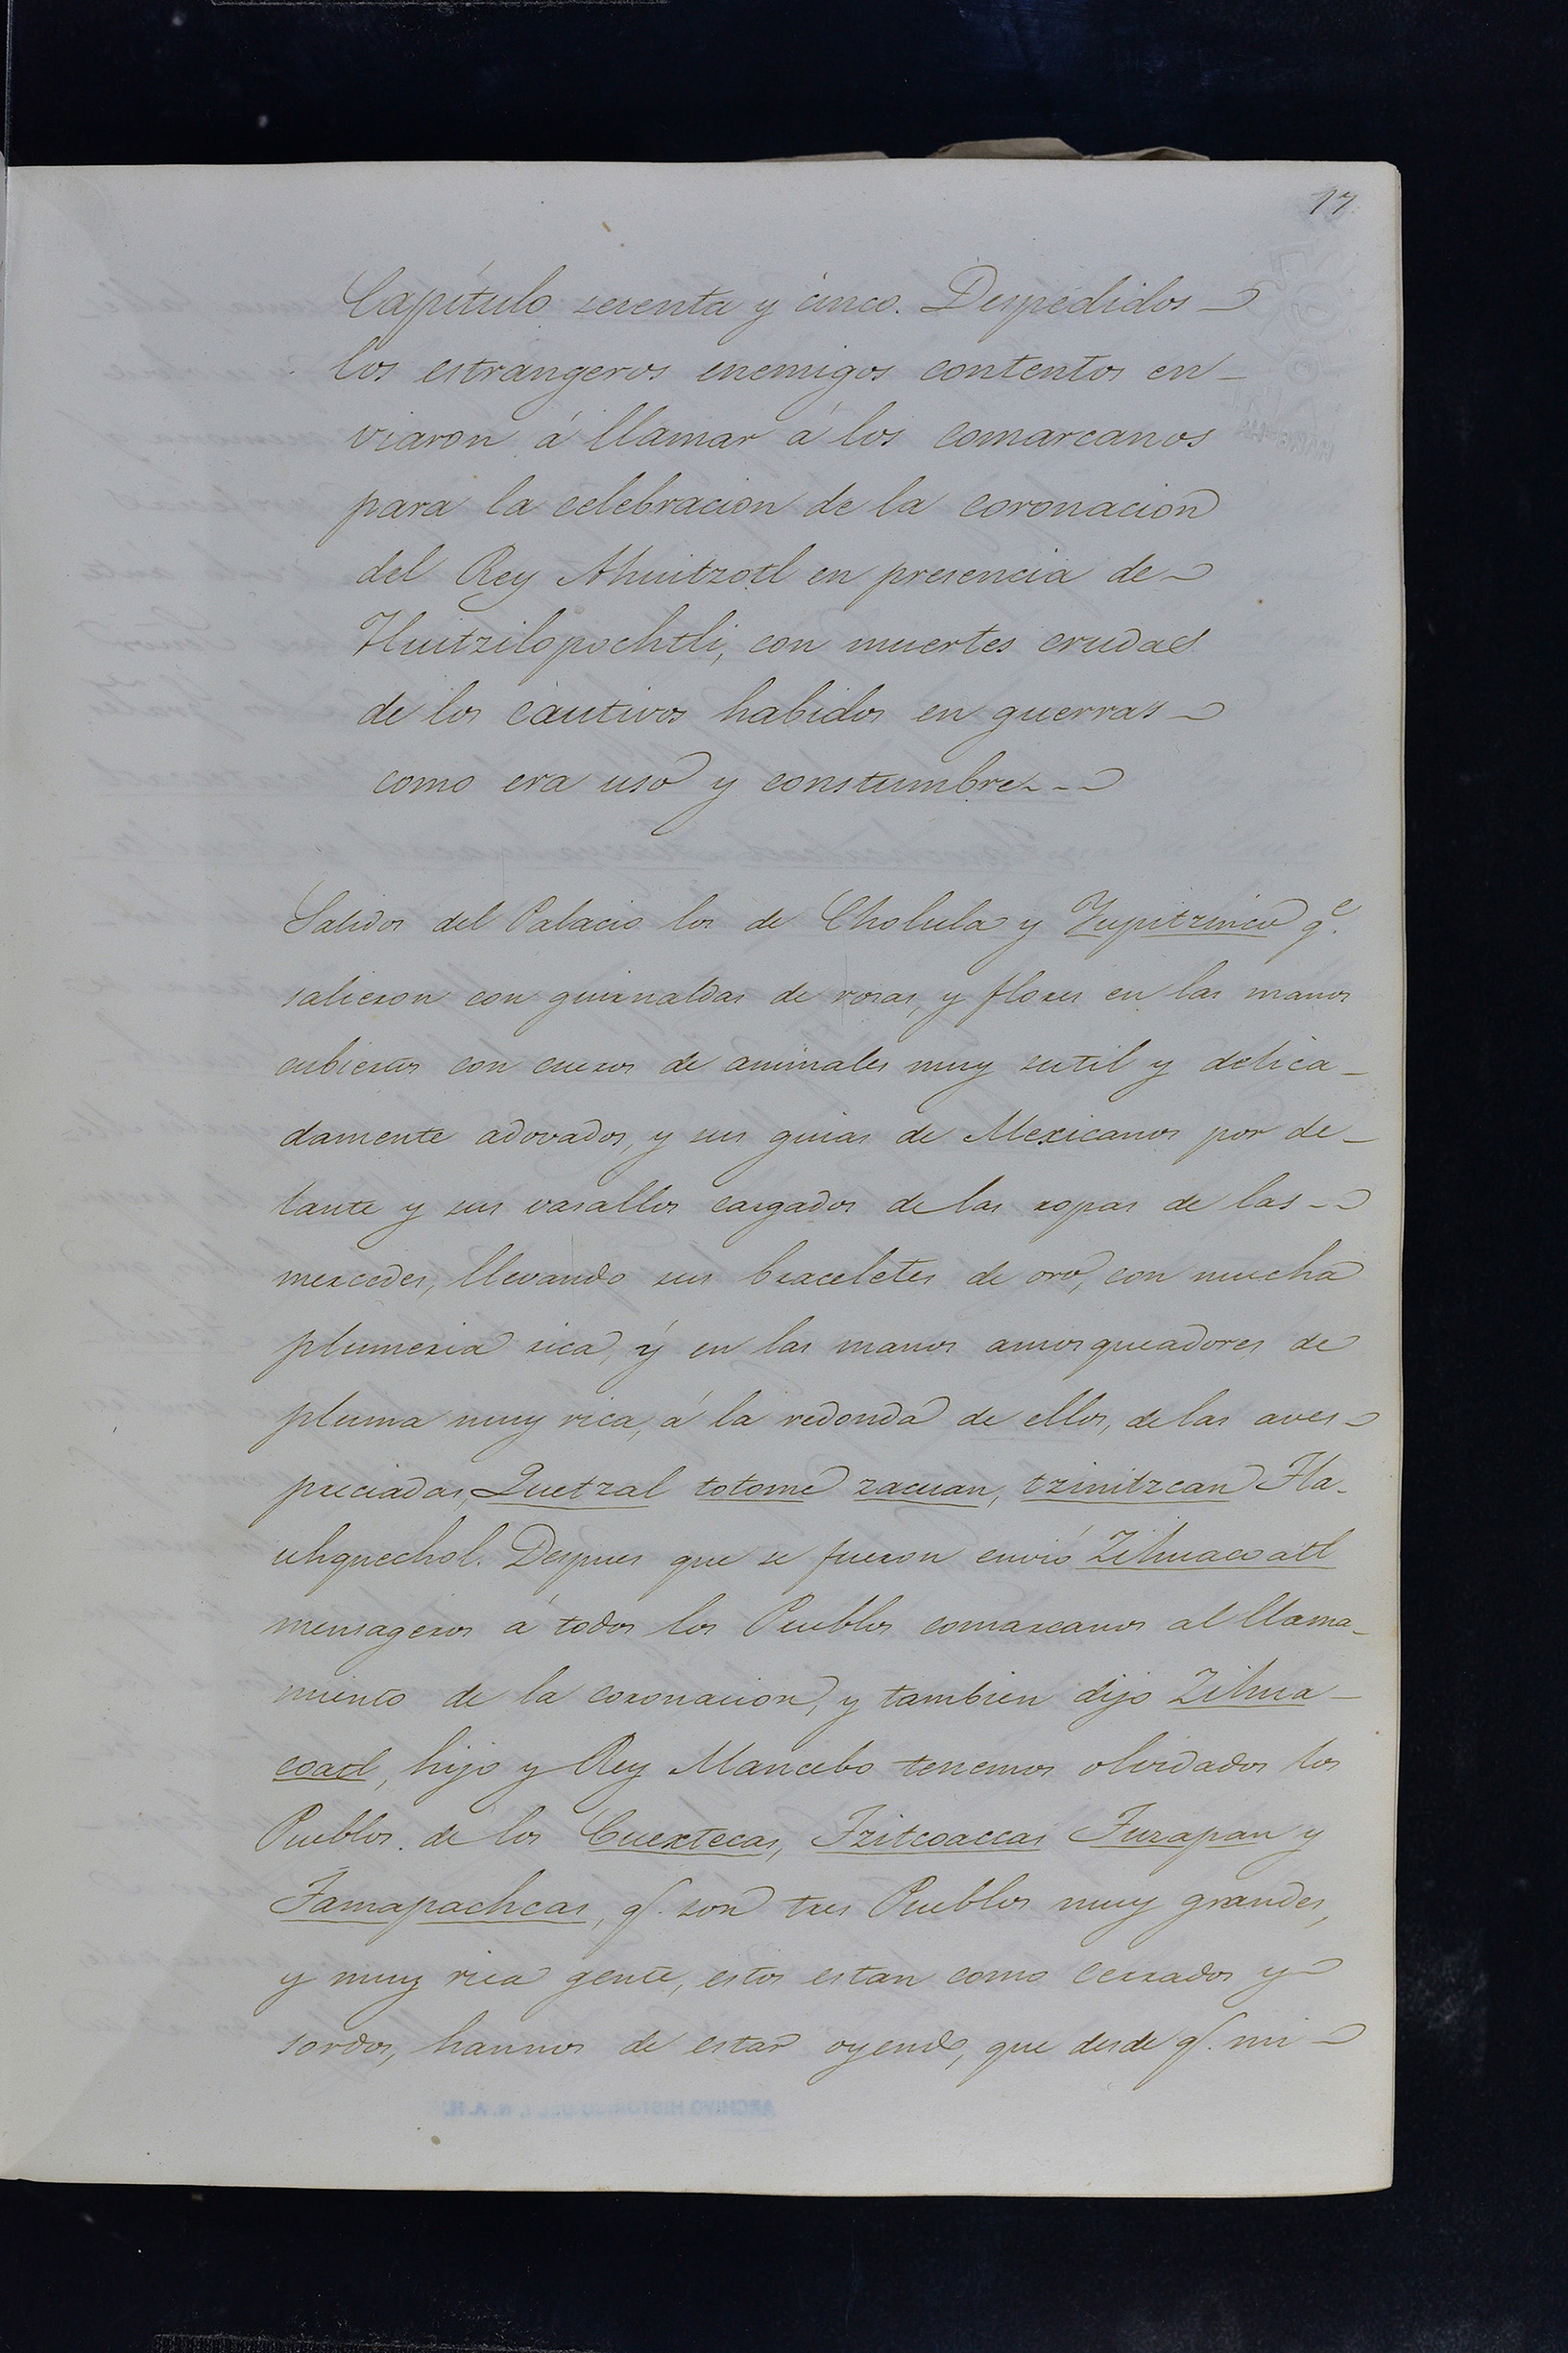 17
Capítulo sesenta y cinco. Despedidos
los estrangeros enemigos contentos en-
viaron á llamar á los comarcanos
para la celebracion de la coronacion
del Rey Ahuitzotl en presencia de
Huitzilopochtli, con muertes crudas
de los cautivos habidos en guerras
como era uso y constumbre
Salidos del Palacio los de Cholula y Yupitzinco q.e
salieron con guirnaldas de rosas, y flores en las manos
cubiertos con cueros de animales muy sutil y delica-
damente adovados, y sus guias de Mexicanos por de-
lante y sus vasallos cargados de las ropas de las
mercedes, llevando sus braceletes de oro, con mucha
plumeria rica, y en las manos amosqueadores de
pluma muy rica, á la redonda de ellos, de las aves
preciadas, Quetzal totome zacuan, tzinitzcan Tla-
uhquechol. Despues que se fueron envió Zihuacoatl
mensageros á todos los Pueblos comarcanos al llama-
miento de la coronacion, y tambien dijo Zihua-
coatl, hijo y Rey Mancebo tenemos olvidados los
Pueblos de los Cuextecas, Tzitcoaccas Tuzapan y
Tamapachcas, q. son tres Pueblos muy grandes,
y muy rica gente, estos estan como cerrados y
sordos, hannos de estar oyendo, que desde q. mi
ARCHIVO HISTORICO DEL I. N. A. H.